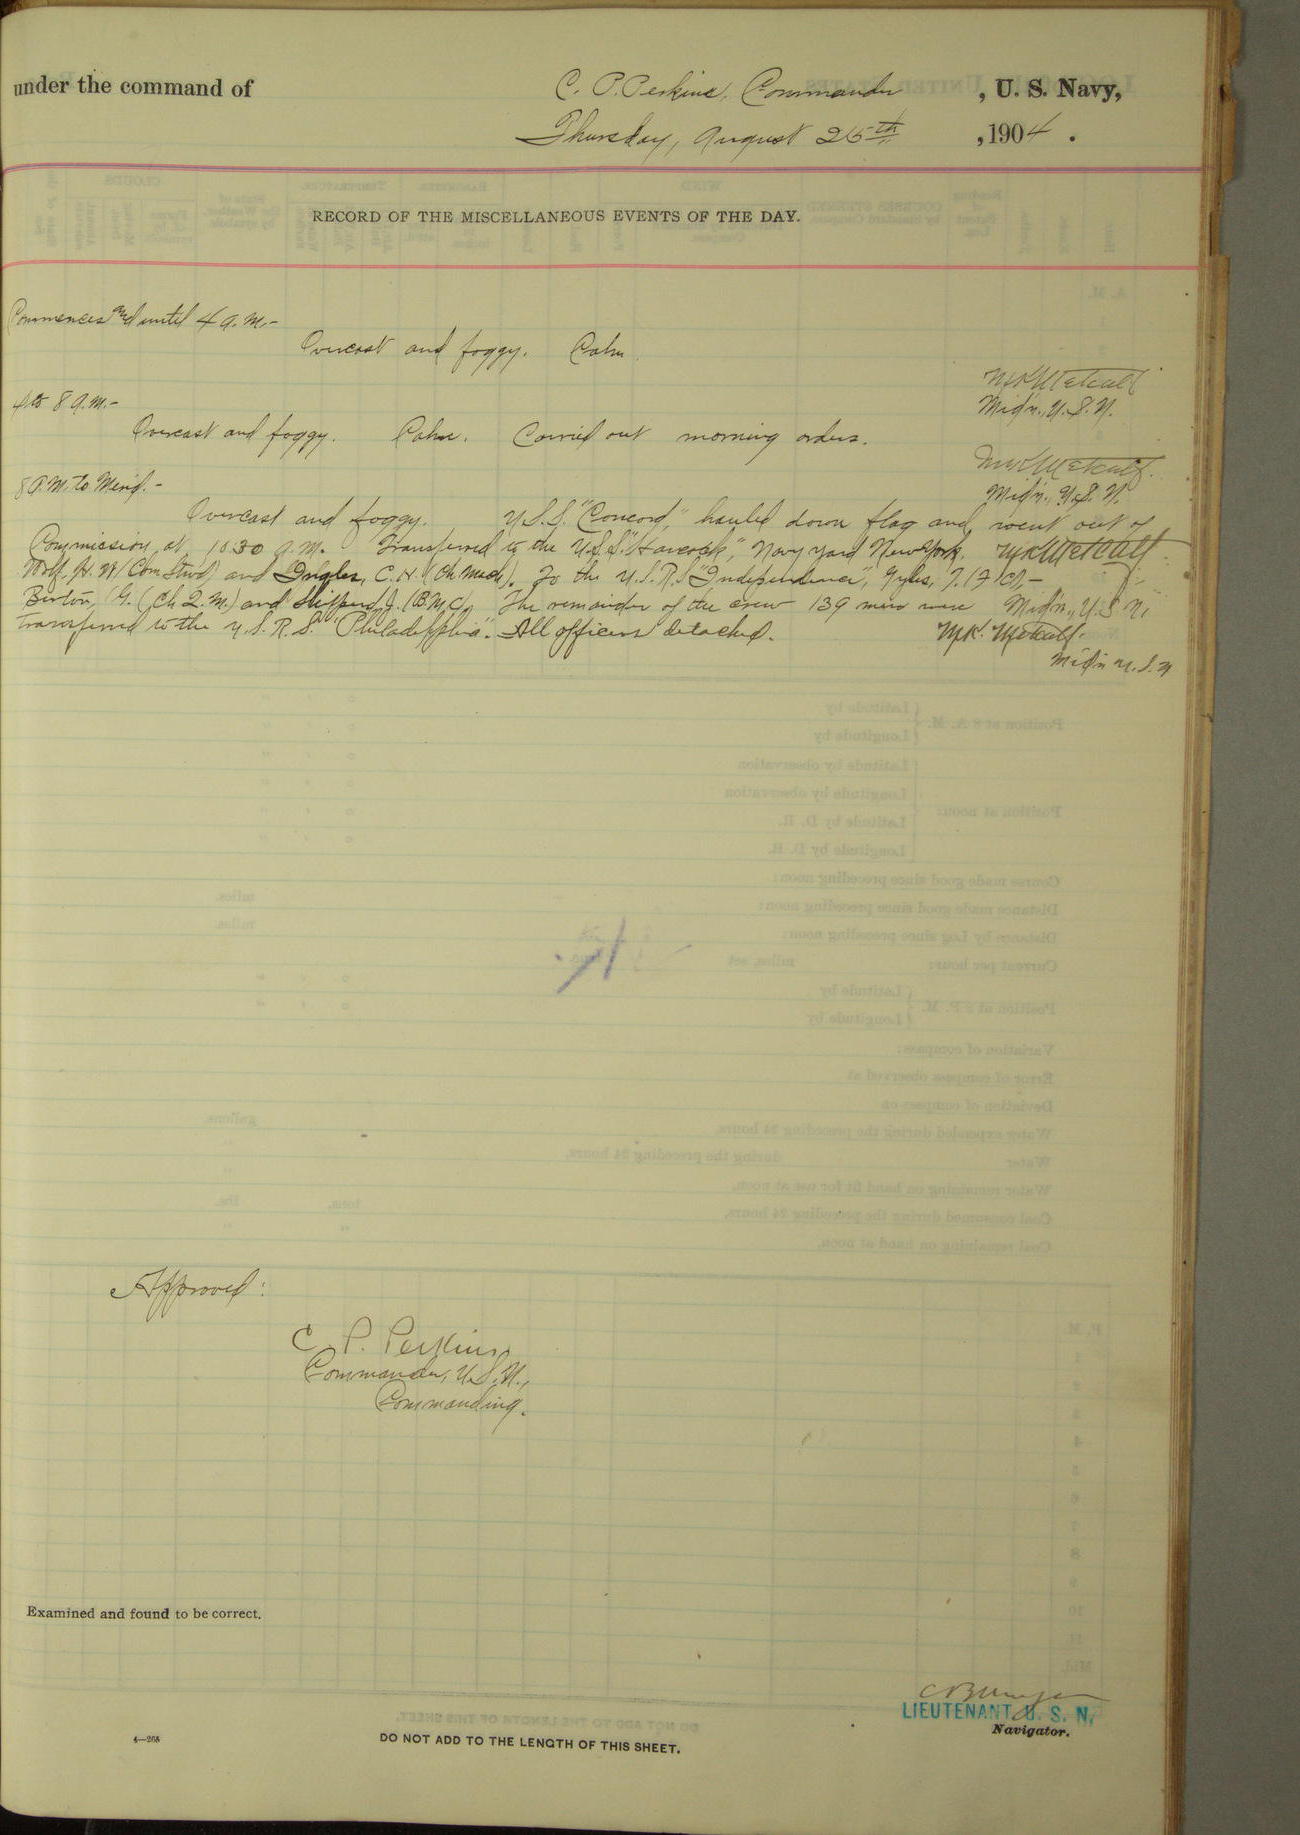 under the command of C. P. Perkins, Commander, U. S. Navy,
Thursday, August 25th, 1904.
RECORD OF THE MISCELLANEOUS EVENTS OF THE DAY.
Commences and until 4 a.m.-
Overcast and foggy. Calm.
M.K. Metcalf
Mid'n., U.S.N.
4 to 8 a.m.-
Overcast and foggy. Calm. Carried out morning orders.
M.K. Metcalf.
Mid'n., U.S.N.
8 a.m. to Merid.-
Overcast and foggy. U.S.S. "Concord," hauled down flag and went out of
Commission at 10:30 a.m. Transferred to the U.S.S. "Hancock", Navy Yard New York,
M.K. Metcalf.
Wolf, H. W. (Com. Stwd) and Ingles, C. H. (Ch. Mach). To the U.S.R.S. "Independence", Gyles, T. (F 1 Cl),-
Berton, G. (Ch Q.M.) and Skippers, J. (B.M.C). The remainder of the crew 139 men were
Mid'n., U.S.N.
transferred to the U.S.R.S. "Philadelphia". All officers detached.
M.K. Metcalf.
Mid'n U.S.N
Approved:
C. P. Perkins
Commander, U.S.N.,
Commanding.
Examined and found to be correct.
LIEUTENANT, U. S. N.
Navigator.
4—268
DO NOT ADD TO THE LENGTH OF THIS SHEET.